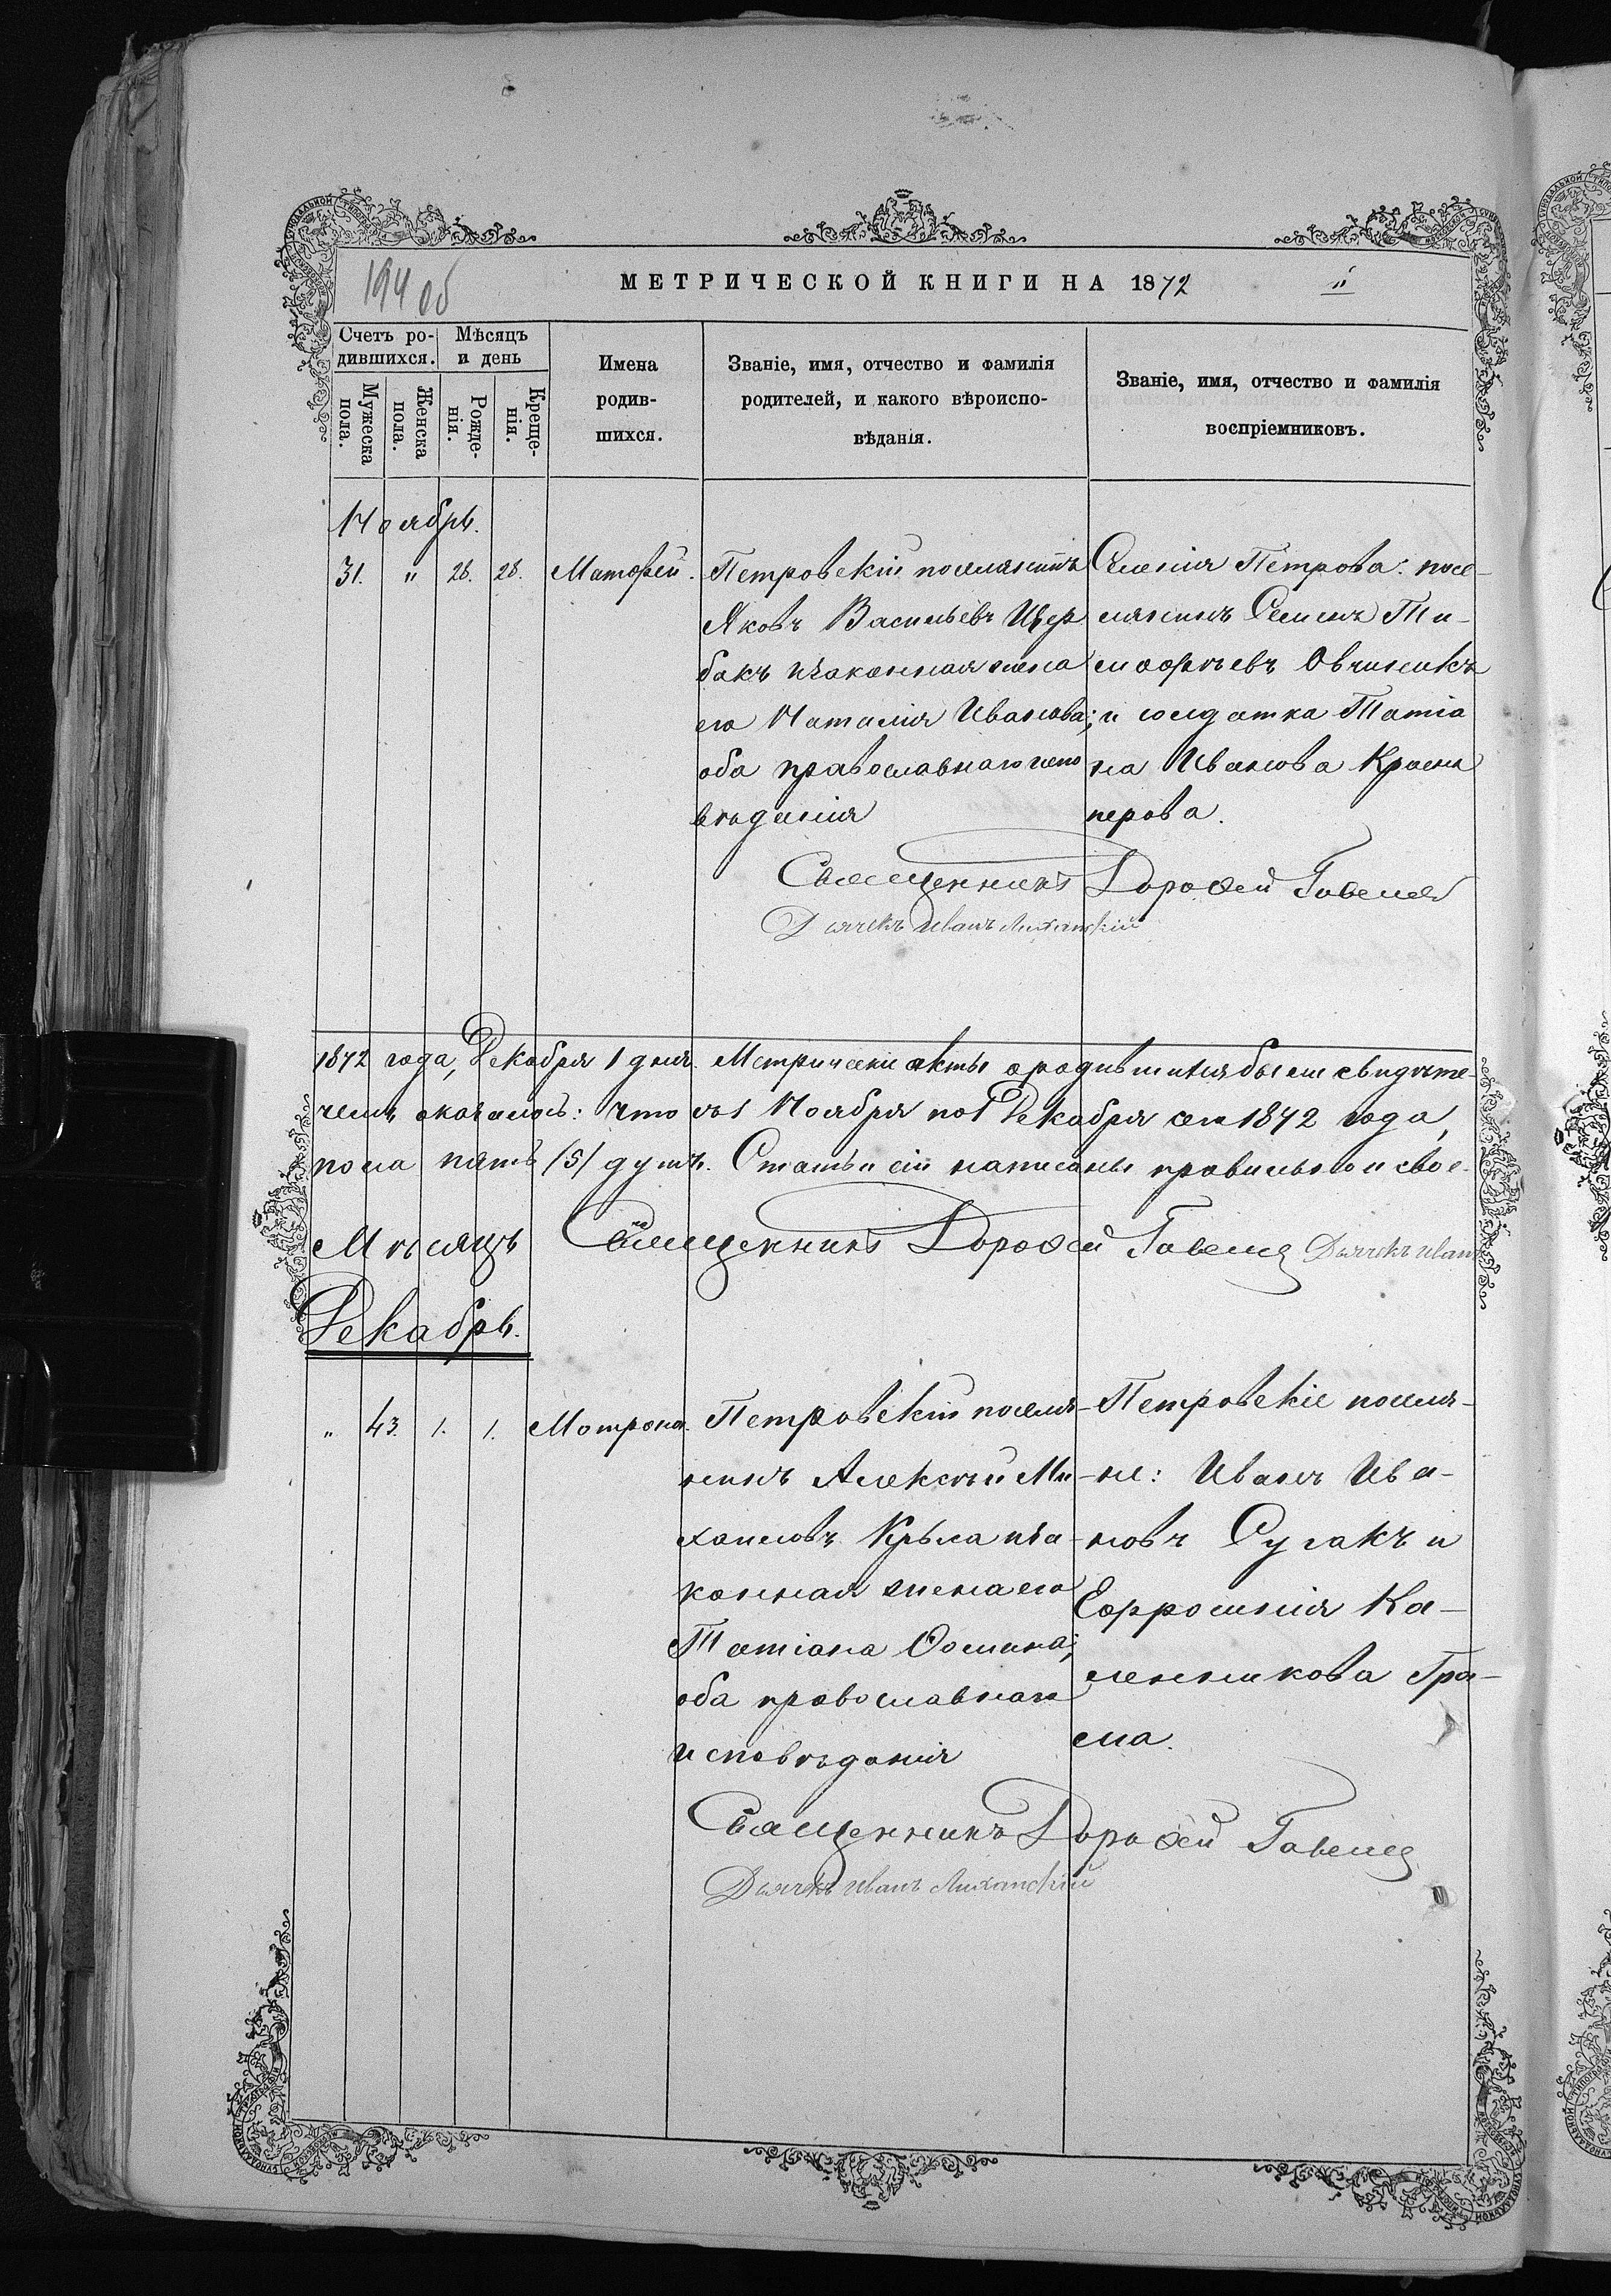 194 об
МЕТРИЧЕСКОЙ КНИГИ НА 1872
Счетъ ро-
дившихся.
Мѣсяцъ
и день
Мужеска
пола.
Женска
пола.
Рожде-
нія.
Креще-
нія.
Имена
родив-
шихся.
Званіе, имя, отчество и фамилія
родителей, и какого вѣроиспо-
вѣданія.
Званіе, имя, отчество и фамилія
воспріемниковъ.
Ноябрь.
31. " 28. 28. Матфей.
Петровскій поселянинъ
Яковъ Васильевъ Щер
бакъ и законная жена
его Наталія Иванова;
оба православнаго испо
вѣданія
Селенія Петрова: посе-
лянинъ Семенъ Ти-
мофѣевъ Овчинникъ
и солдатка Татіа
на Иванова Красно
перова.
Священникъ Дорофей
Дьячекъ Иванъ Лиханскій
1872 года, Декабря 1 дня. Метрическіе акты о родившихся были свидѣте-
чемъ оказалось: что съ 1 Ноября по 1 Декабря сего 1872 года,
пола пять (5) душъ. Статьи сіи написаны правильно и свое-
Священникъ Дорофей Дьячекъ Иванъ
Мѣсяцъ
Декабрь.
" 43. 1. 1. Мотрона.
Петровскій поселя-
нинъ Алексѣй Ми-
хаиловъ Крыса и за-
конная жена его
Татіана Фомина;
оба православнаго
исповѣданія
Петровскіе поселя-
не: Иванъ Ива-
новъ Сугакъ и
Ефросинія Ка-
ленникова Гра-
Священникъ Дорофей
Дьячекъ Иванъ Лиханскій